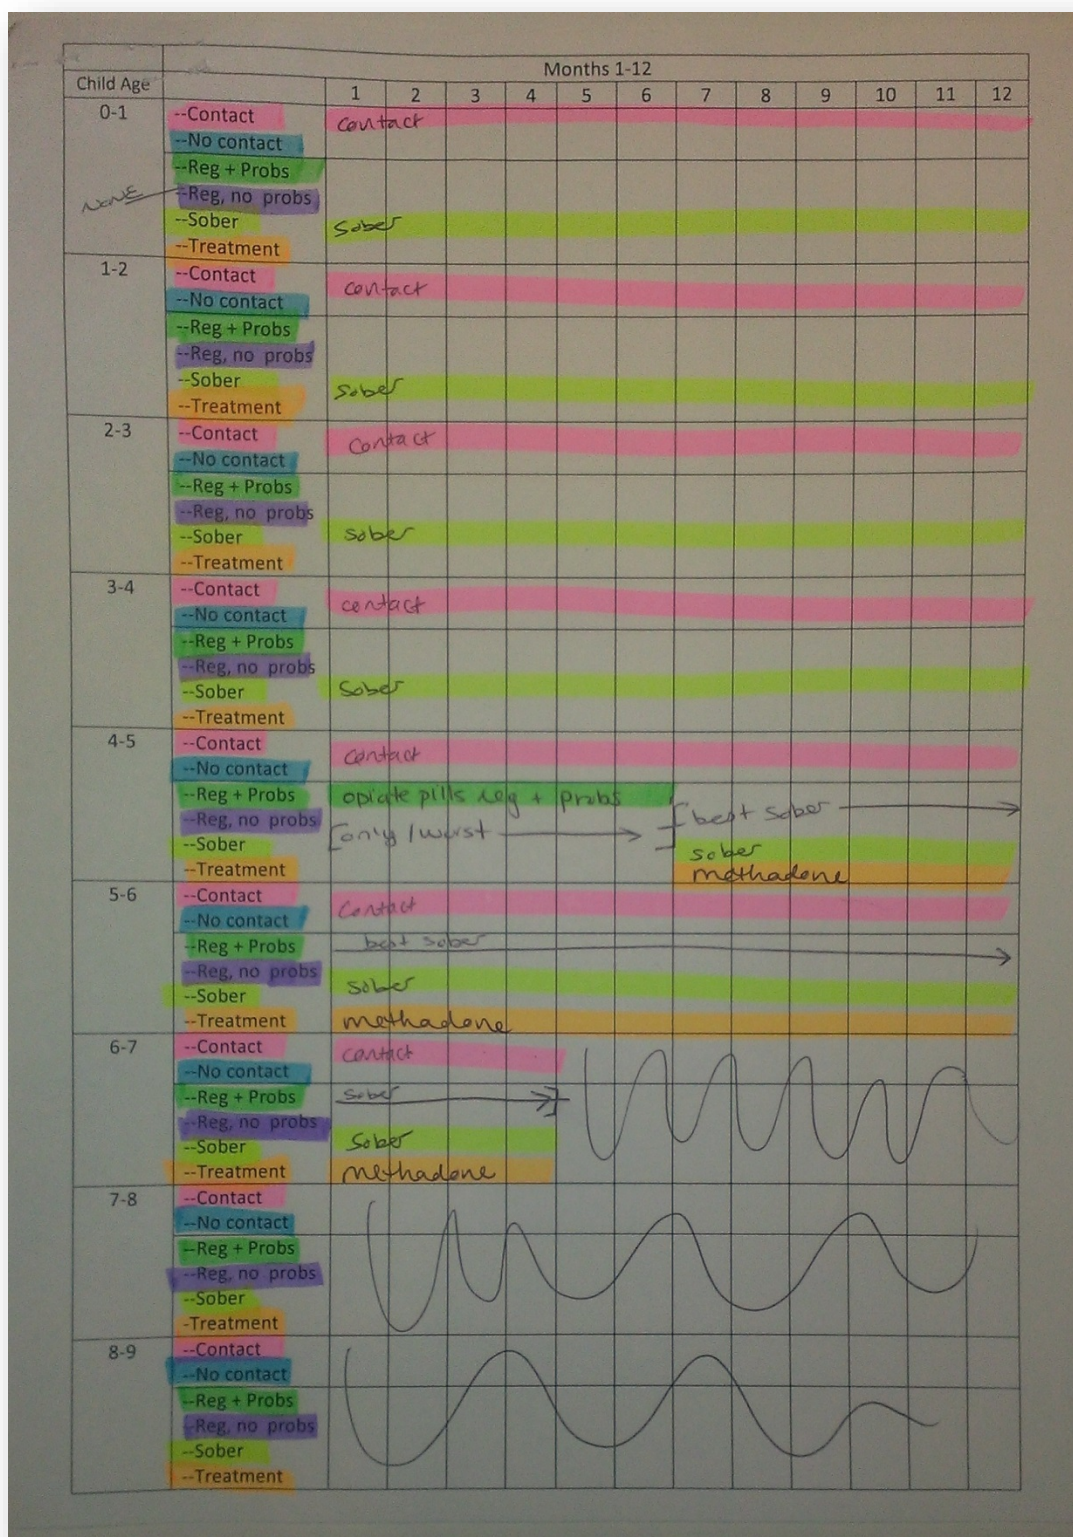 Months 1-12
Child Age 1 2 3 4 5 6 7 8 9 10 11 12
0-1 --Contact contact
--No contact
--Reg + Probs
NONE --Reg, no probs
--Sober Sober
--Treatment
1-2 --Contact contact
--No contact
--Reg + Probs
--Reg, no probs
--Sober Sober
--Treatment
2-3 --Contact Contact
--No contact
--Reg + Probs
--Reg, no probs
--Sober Sober
--Treatment
3-4 --Contact contact
--No contact
--Reg + Probs
--Reg, no probs
--Sober Sober
--Treatment
4-5 --Contact Contact
--No contact
--Reg + Probs opiate pills reg + probs [best sober
--Reg, no probs [only/worst ]
--Sober sober
--Treatment methadone
5-6 --Contact Contact
--No contact
--Reg + Probs best sober
--Reg, no probs
--Sober Sober
--Treatment methadone
6-7 --Contact contact
--No contact
--Reg + Probs Sober ]
--Reg, no probs
--Sober Sober
--Treatment methadone
7-8 --Contact
--No contact
--Reg + Probs
--Reg, no probs
--Sober
-Treatment
8-9 --Contact
--No contact
--Reg + Probs
--Reg, no probs
--Sober
--Treatment